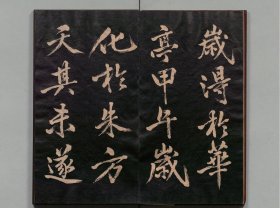 歲得於華
亭甲午歲
化於朱方
天其未遂